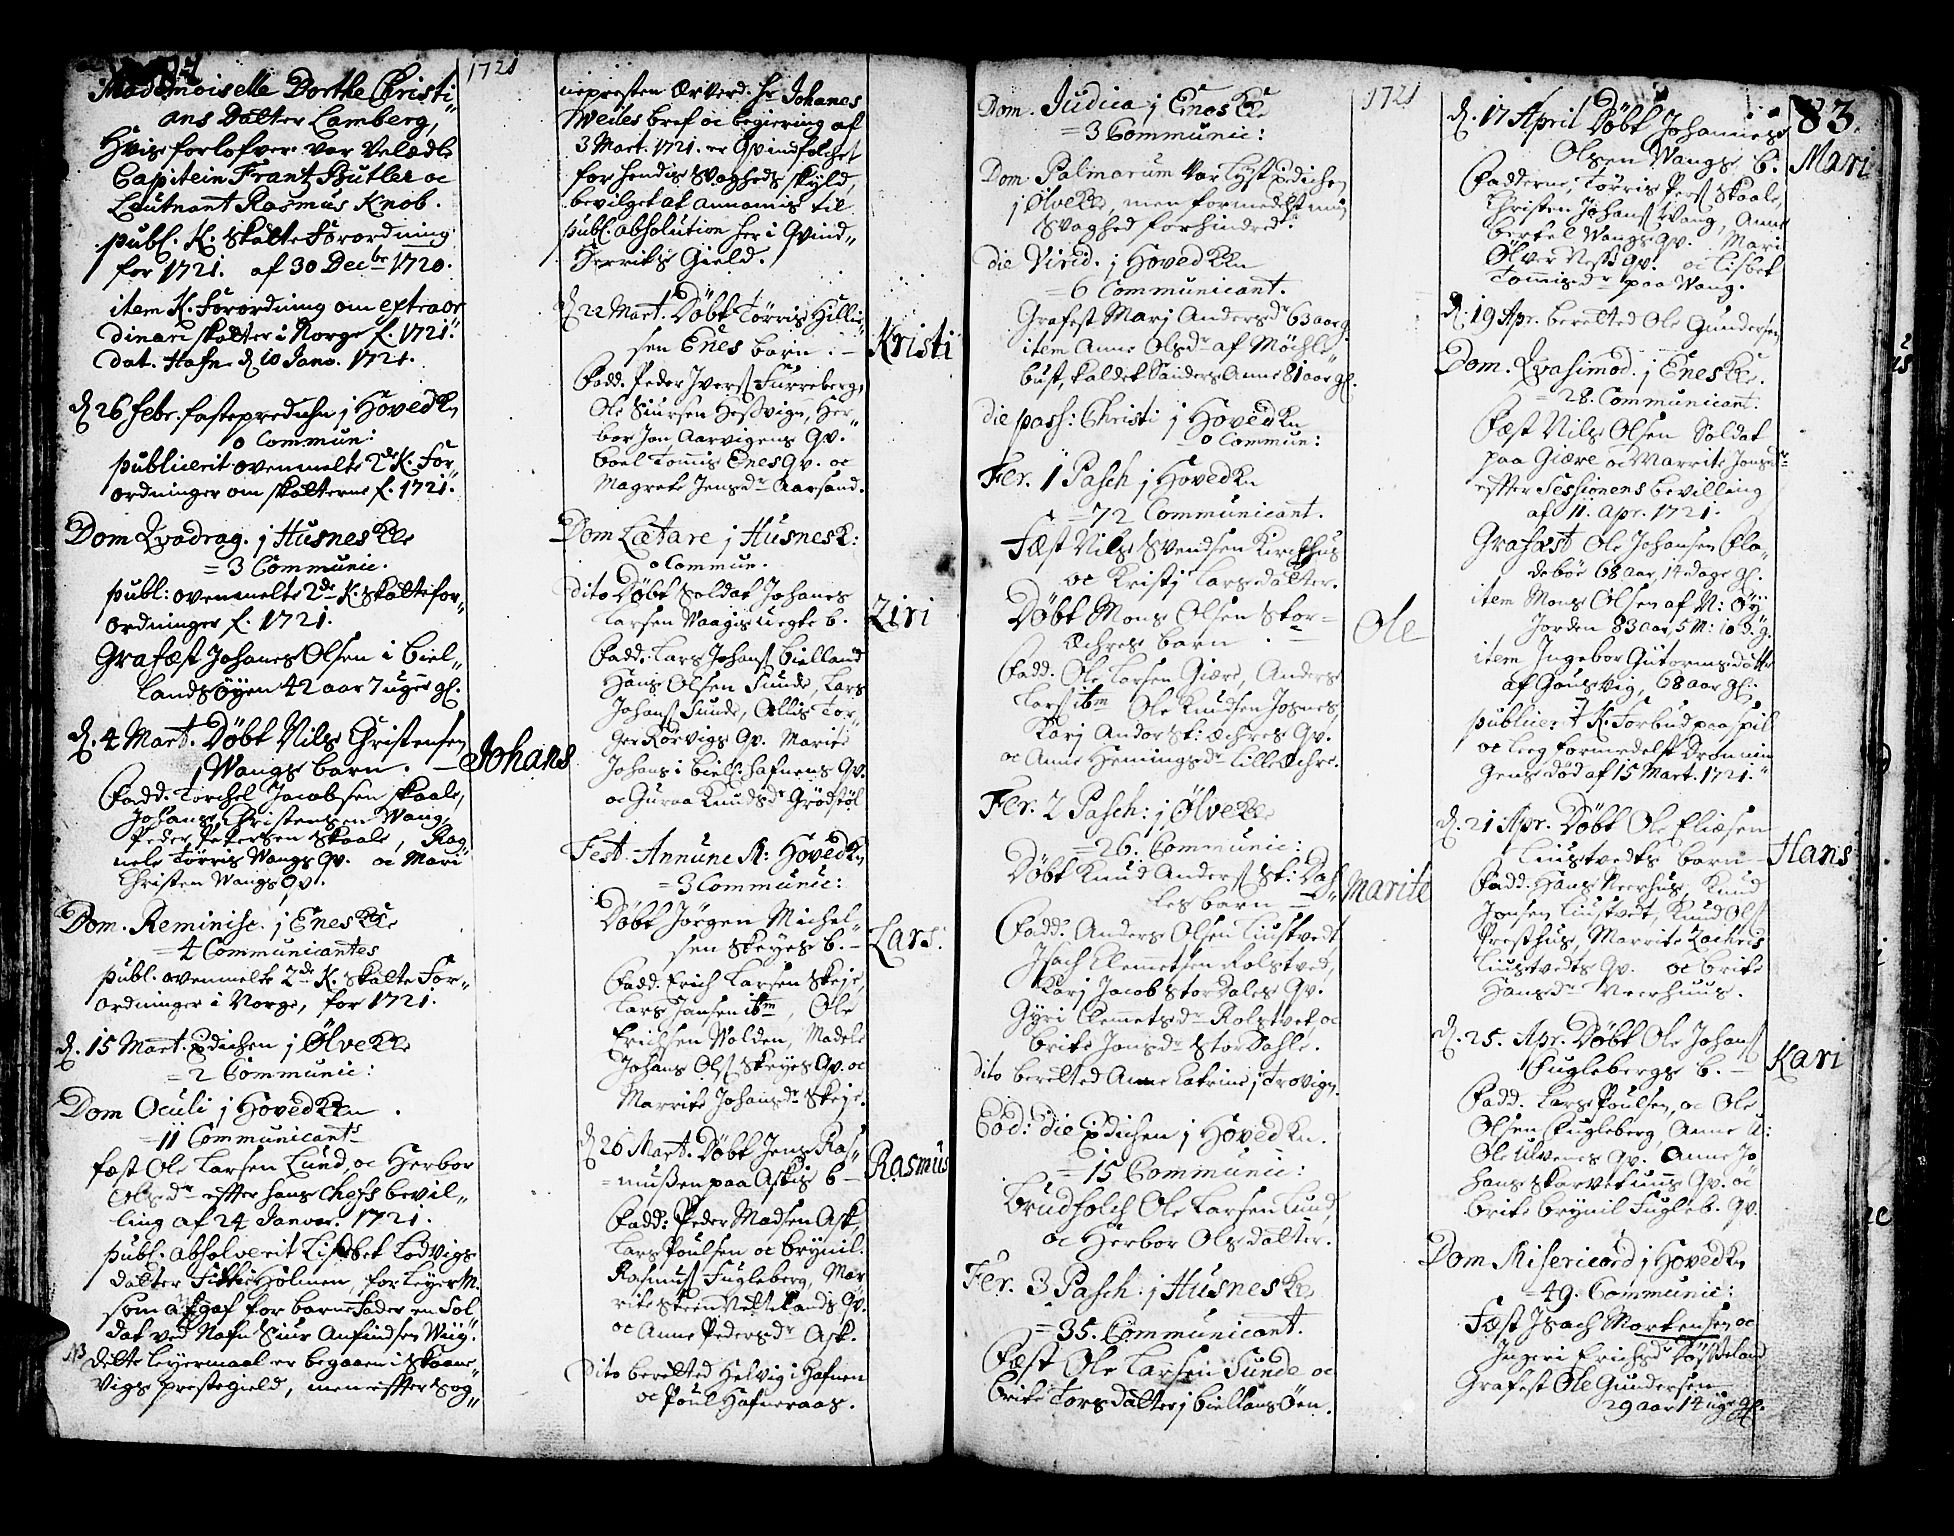 Mademoiselle Dorthe Christi„
ans Datter Lamberg,
Hvis forlofver var Velædle
Capitein Frantz Butler oc
Leutnant Rasmus Knob.
publ. K. Skatte Forordning
for 1721. af 30 Decbr 1720.
item K. Forordning om extraor
dinari skatter i Norge f. 1721.
Dat. Hafn. d 10 Janv. 1721.
d 26 Febr. fasteprædichn j Hoved K.
0 Commun:
publicerit ovenmelte 2de K. For„
ordninger om skatterne f. 1721.
Dom Qvadrag. j Husnes Kle
= 3 Communic.
publ: ovenmelte 2de K. skattefor„
ordninger f. 1721.
Grafæst Johanes Olsen i Biel„
landsøyen 42 aar 7 uger gl.
d. 4 Mart. Døbt Nils Christensen
Wangs barn.
Fadd. Torchel Jacobsen Skaale,
Johans Christensen Wang,
Peder Petersen Skaale, Rag
nele Törris Wangs Qv. oc Mari
Christen Wangs Qv.
Dom. Reminisc. j Enes Kle
= 4 Communicantes
publ. ovenmelte 2de K. Skatte For„
ordninger i Norge, for 1721.
d. 15 Mart. Pdichen j Ølve Kle
= 2 Communic:
Dom Oculi j Hoved Kkn.
= 11 Communicants
fæst Ole Larsen Lund, oc Herbor
Olsdr effter hans chefs bevil„
ling af 24 Januar. 1721.
publ. absolverit Lisbet Lodvigs
datter Holmen, for Leyerm.
som afgaf for barnefader en Sol
dat ved Nafn Siur Anfindsen Wiig.
NB dette leyermaal er begaaen i Skaane„
vigs prestegield, men effter Sog„
1721
Johans
nepresten Ærverd. Hr Johanes
Weiles bref oc begiering af
3 Mart. 1721. er Qvindfolchet
for hendis svagheds skyld,
bevilget at annamis til
publ. absolution her i Qvind„
Herrits Gield.
d 22 Mart. Døbt Tørris Hilli„
sen Enes barn. —
Fadd. Peder Ivers Furreberg,
Ole Siursen Hesvign, Her„
bor Jon Aarvigens Qv.
boel Tomis Enes Qv. oc
Magrete Jensdr Aarsand.
Dom Lætare j Husnes K:
0 Commun.
Dito Døbt Soldat Johanes
Larsen Vaagis uegte b.
Fadd. Lars Johans Bielland
Hans Olsen Sunde, Lars
Johans Sunde, Allis Tor„
ger Rørvigs Qv. Marite
Johans i Biel. hafnens Qv.
oc Guroa Knudsdr Grödstöl
Fest. Annunc M: Hoved K
= 3 Communic:
Døbt Jörgen Michel„
sen Skeyes b. —
Fadd. Erich Larsen Skeje,
Lars Jansen ibm, Ole
Erichsen Volden, Madele
Johans Ols Skeyes Qv. oc
Marrite Johansdr Skeje.
d 26 Mart. Døbt Jens Ras„
mussen paa Askis b —
Fadd: Peder Madsen Ask,
Lars Poulsen oc Brynil.
Rasmus Fugleberg, Mar
rite Steen Vettelands Qv.
oc Anne Pedersdr Ask.
Dito beretted Helvig i Hafnen
oc Poul Hafneraas.
Kristi
Ziri
Lars.
Rasmus
Dom. Judica j Enes Kle
= 3 Communic:
Dom. Palmarum var lyst Pdichen
j Ølve Kle, men formedelst min
Svaghed forhindred.
die Virid. j Hoved Kkn
= 6 Communicant.
Grafest Marj Andersdr 63 aar g.
item Anne Olsdr af Møchle„
bust, kaldet Sanders Anne 81 aar gl.
die pass: Christi j Hoved Kn
0 Commun:
Fer. 1 Pasch j Hoved Kn
= 72 Communicant.
Fæst Nils Svendsen Kirchhus
oc Kristj Larsdatter.
Døbt Mons Olsen Stor=
Æchres barn. —
Fadd. Ole Larsen Giære, Anders
Lars ibm Ole Knudsen Josnes,
Karj Andor St: Æchres Qv.
oc Anne Hemingsdr Lille Æchre.
Fer. 2 Pasch: j Ølve Kle
= 26. Communic:
Døbt Knud Anders St: Dah„
les barn —
Fadd: Anders Olsen Liustvedt
Isach Clemetsen Rolstved,
Karj Jacob Stor Dales Qv.
Gyri Clemetsdr Rolstvet oc
Brite Jonsdr Stor Dahle.
Dito beretted Anne Catrine j Trovign.
Eod: die Pdichen j Hoved Kn.
= 15 Communic:
Brudfolch Ole Larsen Lund,
oc Herbor Olsdatter.
Fer. 3 Pasch: j Husnes Kle
= 35. Communicant.
Fæst Ole Larsen Sunde oc
Brite Torsdatter j Biellans Öen.
1721
Ole
Marite
d. 17 April Døbt Johannes
Olsen Wangs b.
Fadderne, Törris Pers Skaale,
Christen Johans Wang, Anne
Bertel Wangs Qv. Mari
Ølver Ness Qv. oc Lisbet
Tomisdr paa Wang.
d. 19 Apr. beretted Ole Gundersen
Dom. Qvasimod. j Enes Kle.
= 28. Communicant.
Fæst Nils Olsen Soldat
paa Giære oc Marrite Jonsdr
effter Sessionens bevilling
af 11. Apr. 1721.
Grafæst Ole Johansen Flo„
deböe 68 Aar, 14 dage gl.
item Mons Olsen af N: Öy
jorden 83 aar, 5 M: 10 D. g.
item Ingebor Gutormsdatter
af Gousvig, 68 aar gl.
publicert K. Forbud paa spil
oc leeg formedelst Dronnin
gens död af 15 Mart. 1721.
d. 21 Apr. Døbt Ole Eliæsen
Liustvedts barn —
Fadd. Hans Neerhus, Knud
Jonsen Liustvet, Knud Ols
Presthus, Marrite Zachris
Liustvedts Qv. oc Brite
Hansdr Neerhuus.
d. 25. Apr. Døbt Ole Johans
Fuglebergs b. —
Fadd. Lars Poulsen, oc Ole
Olsen Fugleberg, Anne
Ole Ulvenes Qv. Anne Jo
hans Skarvetuns Qv. oc
Brite Brynil Fugleb. Qv.
Dom Misericord j Hoved Kn
= 49. Communic:
Fæst Isach Mortensen oc
Ingeri Erichsdr Døsseland
Grafest Ole Gundersen
29 aar 14 uger gl.
83.
Mari
Hans
Kari